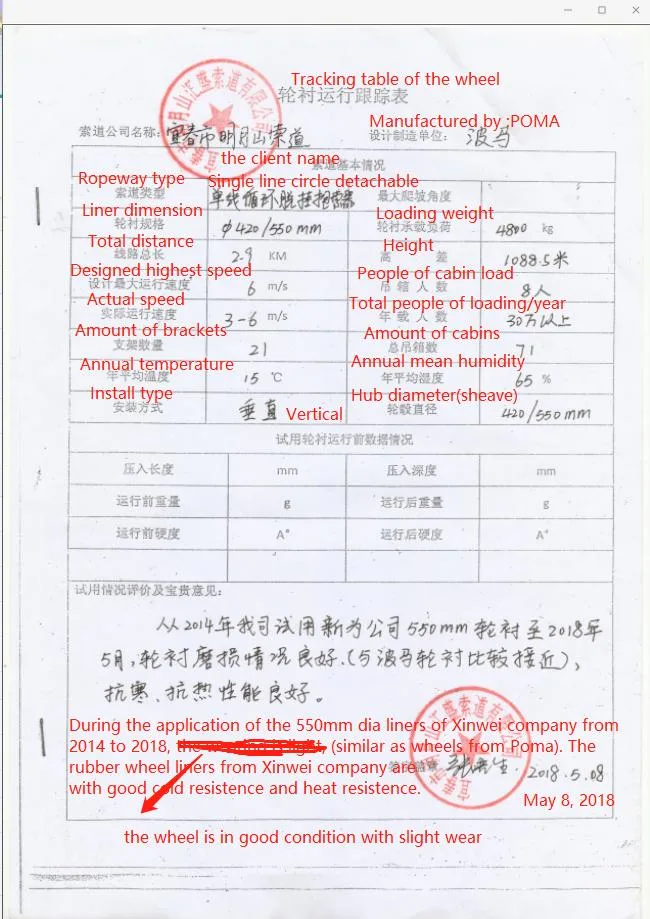 Tracking table of the wheel
轮衬运行跟踪表
Manufactured by :POMA
索道公司名称: 宜春市明月山索道 设计制造单位: 波马
the client name
索道基本情况
Ropeway type Single line circle detachable
索道类型 单线循环脱挂抱索器 最大爬坡角度
Liner dimension Loading weight
轮衬规格 φ420/550mm 轮衬承载负荷 4800 kg
Total distance Height
线路总长 2.9 KM 高 差 1088.5米
Designed highest speed People of cabin load
设计最大运行速度 6 m/s 吊箱人数 8人
Actual speed Total people of loading/year
实际运行速度 3-6 m/s 年载人数 30万以上
Amount of brackets Amount of cabins
支架数量 21 总吊箱数 71
Annual temperature Annual mean humidity
年平均温度 15 ℃ 年平均湿度 65 %
Install type Hub diameter(sheave)
安装方式 垂直 Vertical 轮毂直径 420/550mm
试用轮衬运行前数据情况
压入长度 mm 压入深度 mm
运行前重量 g 运行后重量 g
运行前硬度 A° 运行后硬度 A°
试用情况评价及宝贵意见:
从2014年我司试用新为公司550mm轮衬至2018年
5月,轮衬磨损情况良好.(与波马轮衬比较接近),
抗寒、抗热性能良好。
During the application of the 550mm dia liners of Xinwei company from
2014 to 2018, (similar as wheels from Poma). The
rubber wheel liners from Xinwei company are
2018.5.08
with good cold resistence and heat resistence.
May 8, 2018
the wheel is in good condition with slight wear